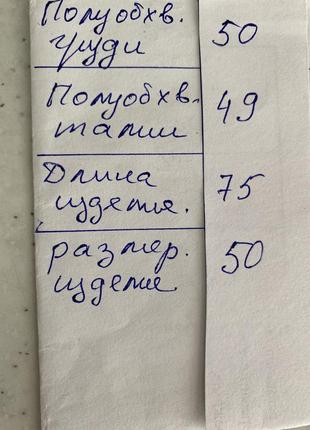 Полуобхв.
груди 50
Полуобхв.
талии 49
Длина
изделия. 75
размер. 50
изделия